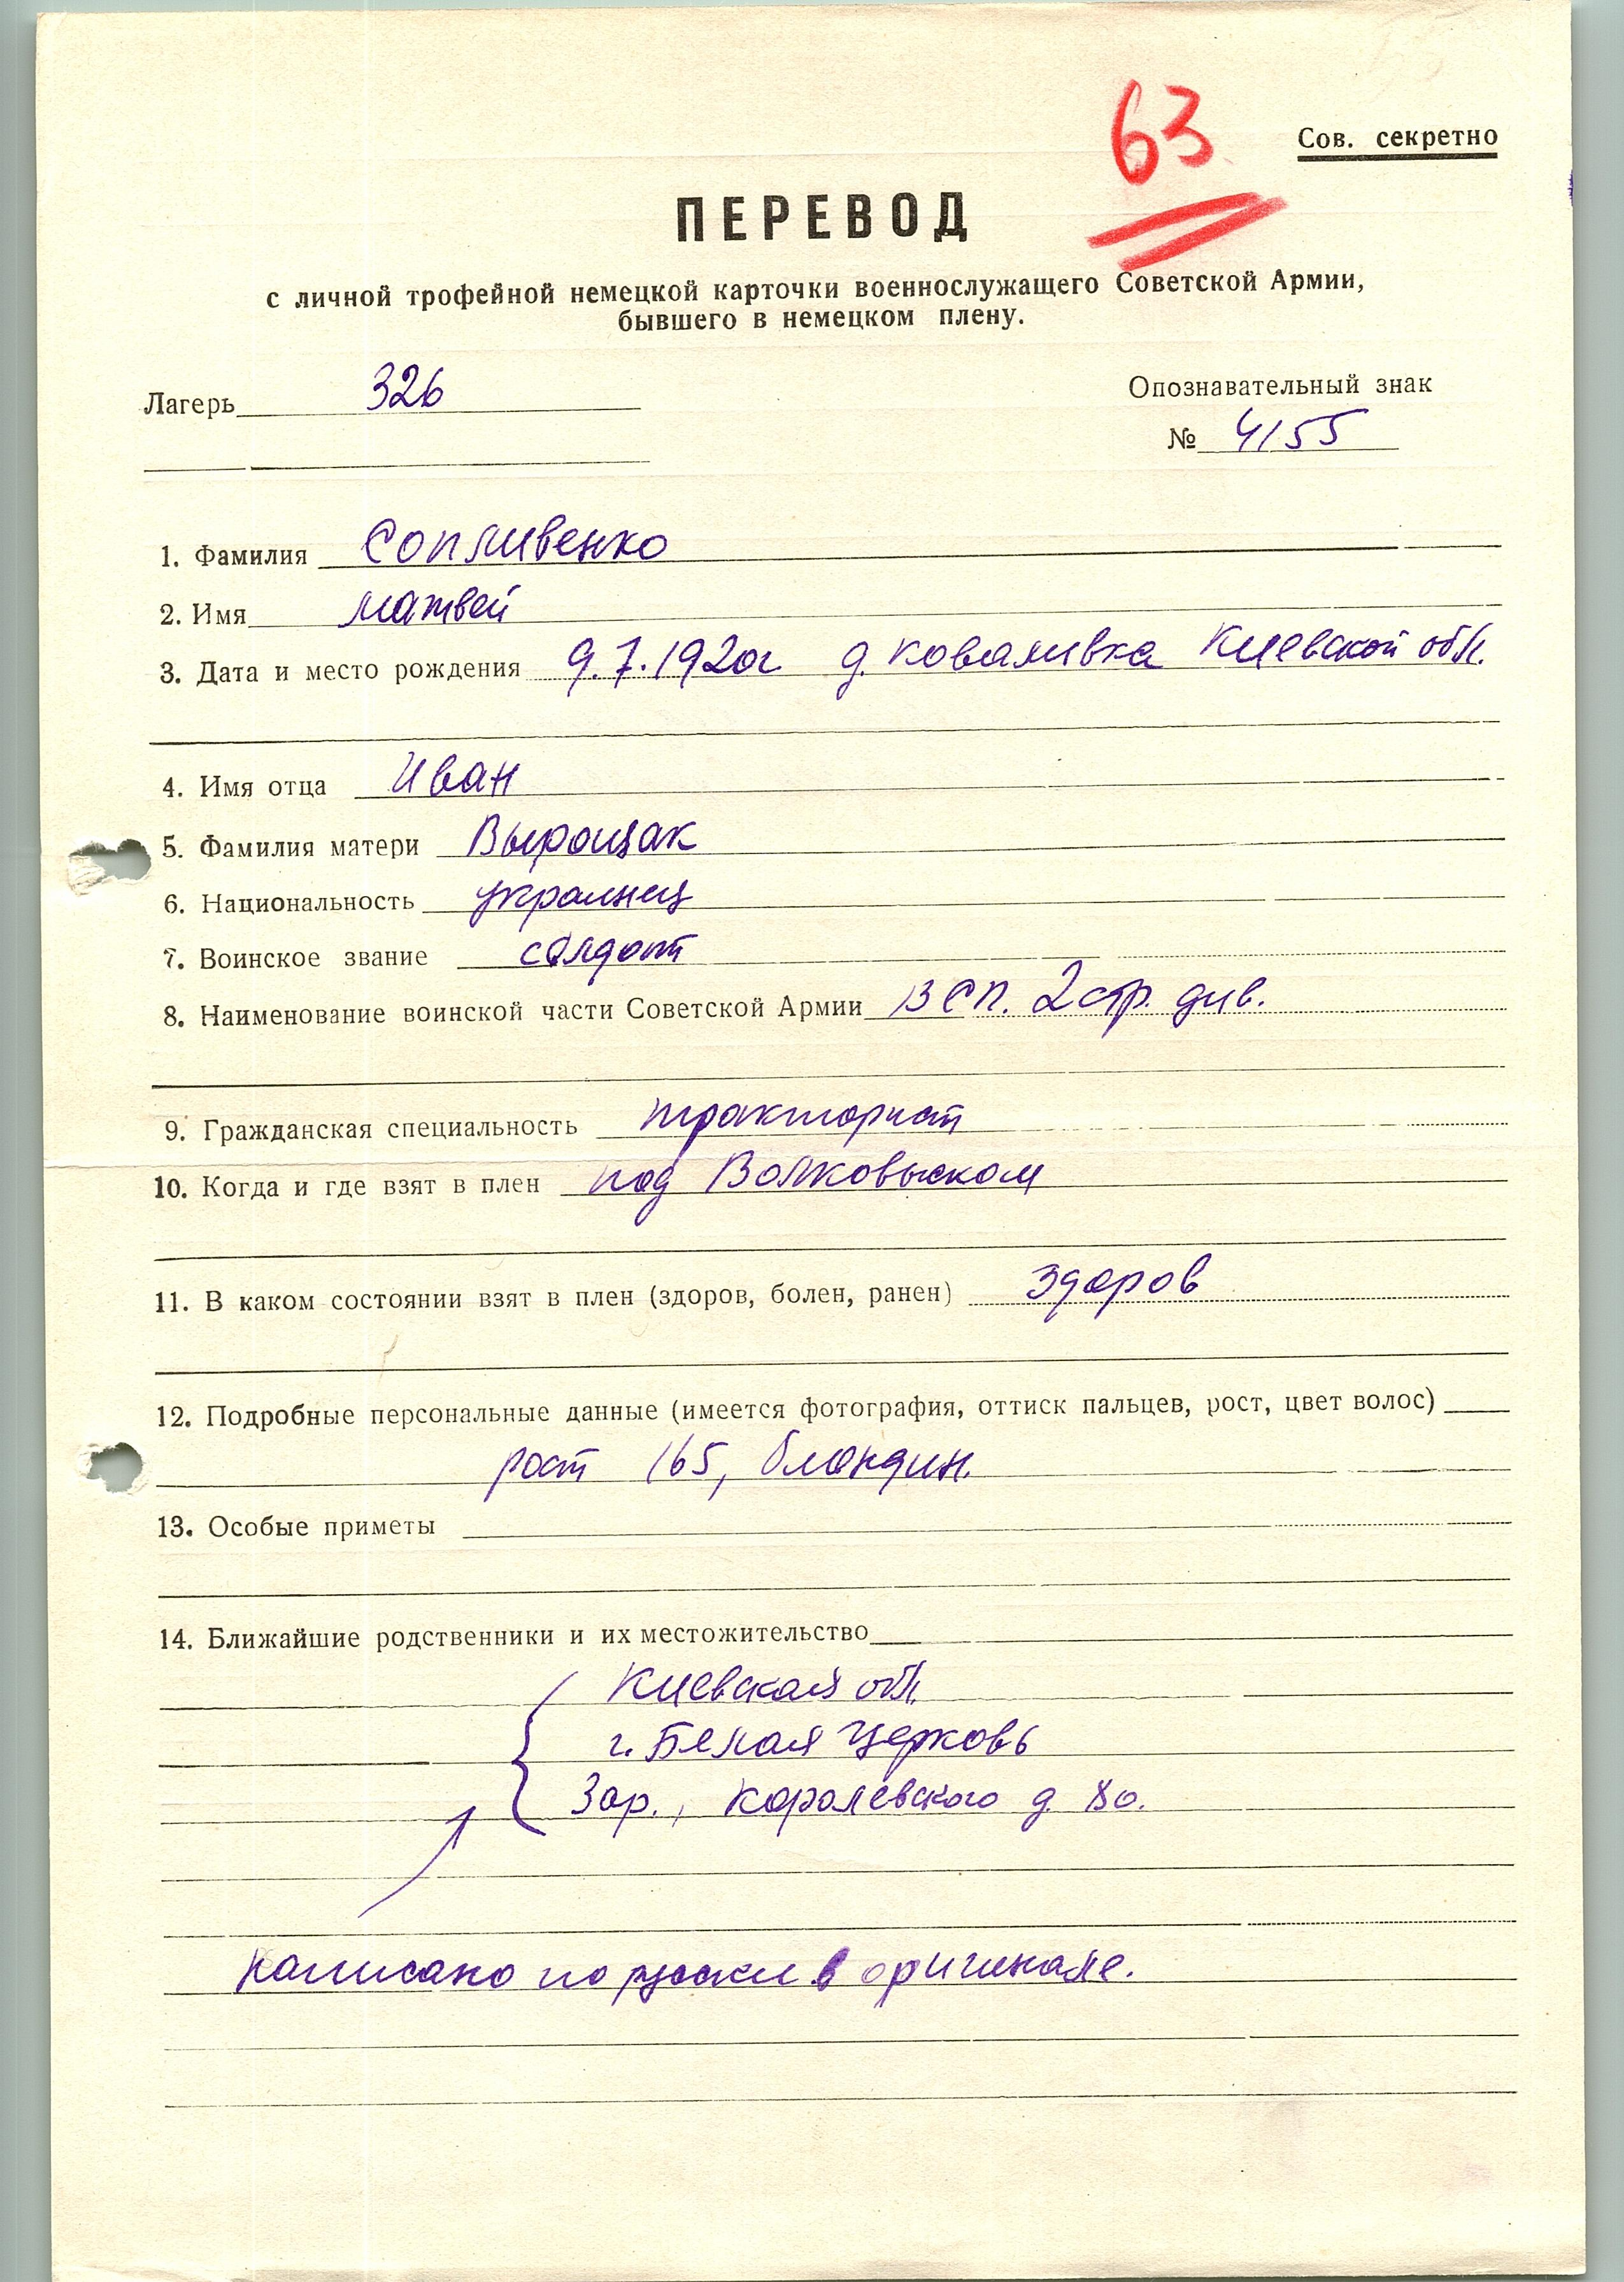 63
Сов. секретно
ПЕРЕВОД
с личной трофейной немецкой карточки военнослужащего Советской Армии,
бывшего в немецком плену.
Лагерь 326
Опознавательный знак
№ 4155
1. Фамилия Сопливенко
2. Имя Матвей
3. Дата и место рождения 9.7.1920г д. Коваливка Киевской обл.
4. Имя отца Иван
5. Фамилия матери Вырощак
6. Национальность украинец
7. Воинское звание солдат
8. Наименование воинской части Советской Армии 13 СП. 2 стр. див.
9. Гражданская специальность тракторист
10. Когда и где взят в плен под Волковыском
11. В каком состоянии взят в плен (здоров, болен, ранен) здоров
12. Подробные персональные данные (имеется фотография, оттиск пальцев, рост, цвет волос)
рост 165, блондин.
13. Особые приметы
14. Ближайшие родственники и их местожительство
Киевская обл.
г. Белая Церковь
Зар., Королевского д. 80.
написано по русски в оригинале.